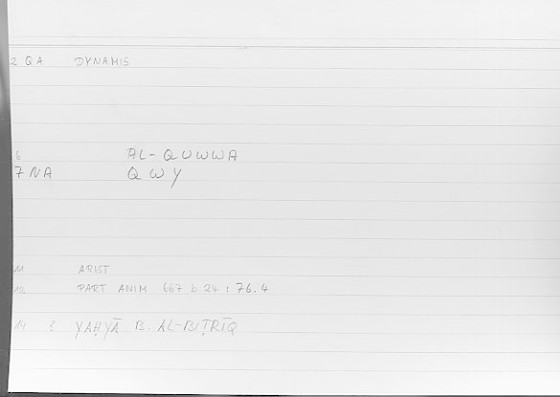 2 QA DYNAMIS
6 AL-QUWWA
7 NA QWY
11 ARIST
12 PART ANIM 667 b 24 : 76.4
14 YAḤYĀ B. AL-BIṬRĪQ